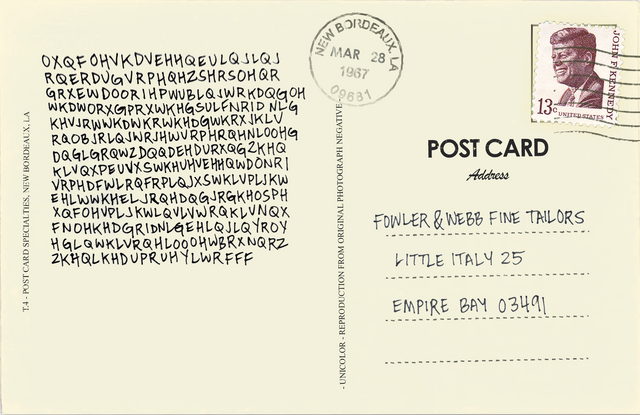 OXQFOHVKDVEHHQEULQJLQJ
RQERDUGVRPHQHZSHRSOHQR
GRXEWDOORIHPWUBLQJWRKDQGOH
WKDWORXGPRXWKHGSULFNRIDNLG
KHVJRWWKDWKRWKHDGWKRXJKLV
RQOBJRLQJWRJHWVRPHRQHNLOOHG
DQGLGRQWZDQQDEHDURXQGZKHQ
KLVQXPEUVXSWKHUHVEHHQWDONRI
VRPHDFWLRQFRPLQJXSWKLVPLJKW
EHLWWKHELJRQHDQGJRGKHOSPH
XQFOHVPLJKWLQVLVWRQKLVNQX
FNOHKHDGRIDNLGEHLQJLQYROY
HGLQWKLVRQHLOOOHWBRXNQRZ
ZKHQLKHDUPRUHYLWRFFF
T.4 - POST CARD SPECIALTIES, NEW BORDEAUX, LA
- UNICOLOR - REPRODUCTION FROM ORIGINAL PHOTOGRAPH NEGATIVE -
NEW BORDEAUX, LA
MAR 28
1967
09681
JOHN F KENNEDY
13c
UNITED STATES
POST CARD
Address
FOWLER & WEBB FINE TAILORS
LITTLE ITALY 25
EMPIRE BAY 03491